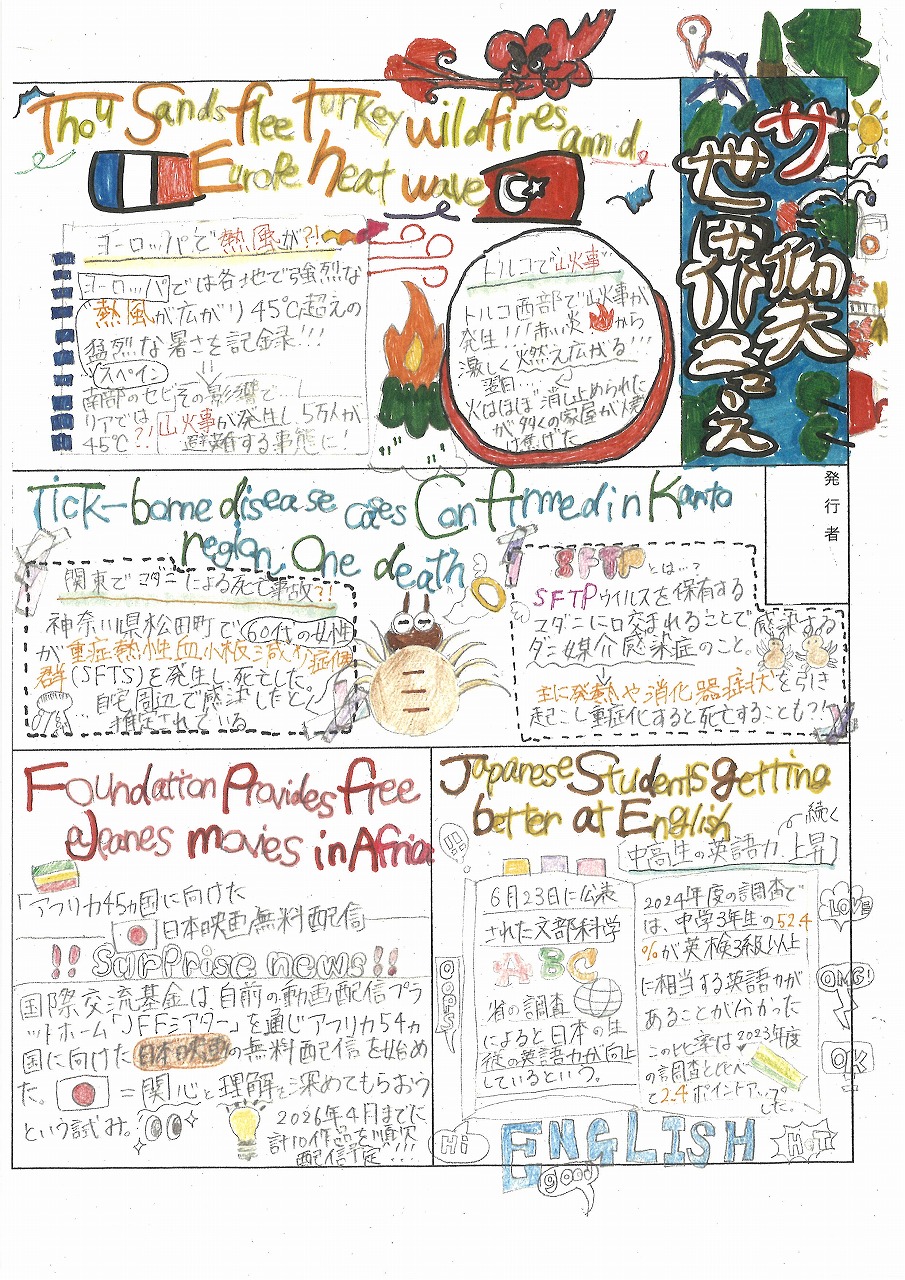 ザ 仰天
世界ニュース
発行者
Thousands flee Turkey wildfires amid
Europe heat wave
ヨーロッパで熱風が?!
ヨーロッパでは各地で強烈な
熱風が広がり45℃超えの
猛烈な暑さを記録!!!
スペイン
南部のセビ
リアでは
45℃?!
その影響で…
山火事が発生し5万人が
避難する事態に!
トルコで山火事
トルコ西部で山火事が
発生!!!赤い火から
激しく燃え広がる!!!
翌日…
火はほぼ消し止められた
が多くの家屋が焼
け焦げた
Tick-borne disease cases Confirmed in Kanto
region, One death
関東でマダニによる死亡事故?!
神奈川県松田町で60代の女性
が重症熱性血小板減少症候
群(SFTS)を発生し死亡した。
自宅周辺で感染したと
推定されている
SFTPとは…?
SFTPウイルスを保有する
マダニに口交まれることで感染する
ダニ媒介感染症のこと。
主に発熱や消化器症状を引き
起こし重症化すると死亡することも?!
Foundation Provides free
Japanes movies in Africa
「アフリカ45ヵ国に向けた
日本映画無料配信
!! Surprise news!!
国際交流基金は自前の動画配信プラ
ットホーム「JFFシアター」を通じアフリカ54ヵ
国に向けた日本映画の無料配信を始め
た。 =関心と理解を深めてもらおう
という試み。
2026年4月までに
計10作品を順次
配信予定!!!
Japanese Students getting
better at English
続く
中高生の英語力上昇
6月23日に公表
された文部科学
ABC
省の調査
によると日本の生
徒の英語力が向上
しているという。
2024年度の調査で
は、中学3年生の52.4
%が英検3級以上
に相当する英語力が
あることが分かった
この比率は2023年度
の調査と比べ
て2.4ポイントアップ
した。
OMG!
OK
Hi
ENGLISH
good